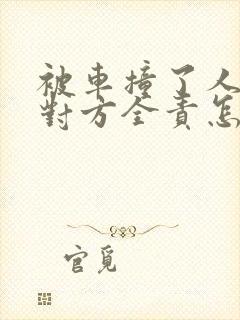 被車撞了人
對方全責怎
官覓